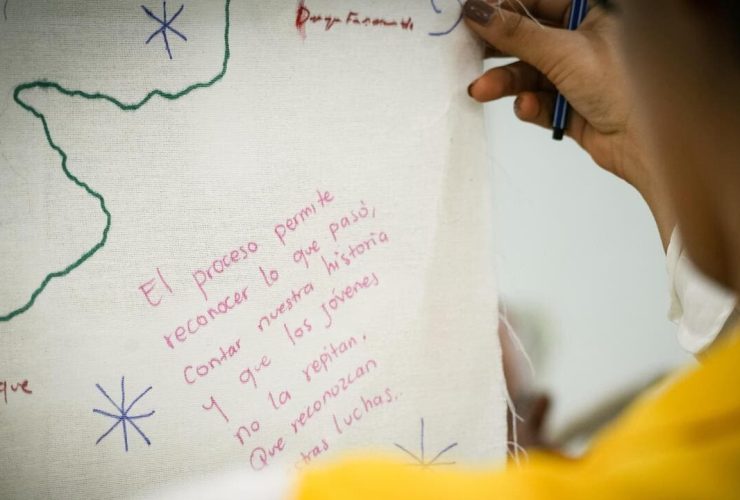 El proceso permite
reconocer lo que pasó,
contar nuestra historia
y que los jóvenes
no la repitan.
Que reconozcan
luchas..
que